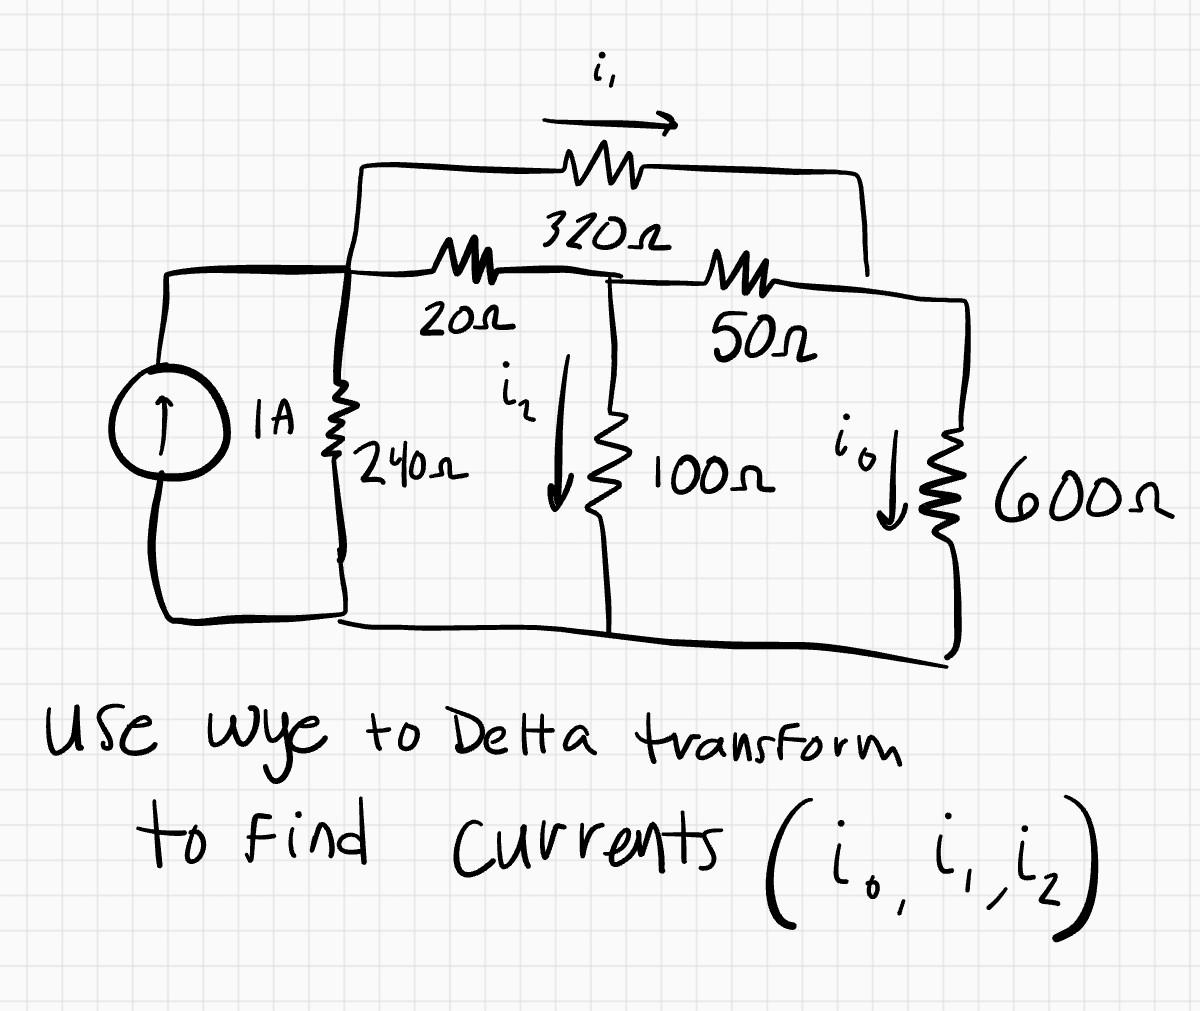 i₁
320Ω
20Ω
50Ω
i₂
1A
240Ω
100Ω
i₀
600Ω
Use wye to Delta transform
to find currents (i₀, i₁, i₂)